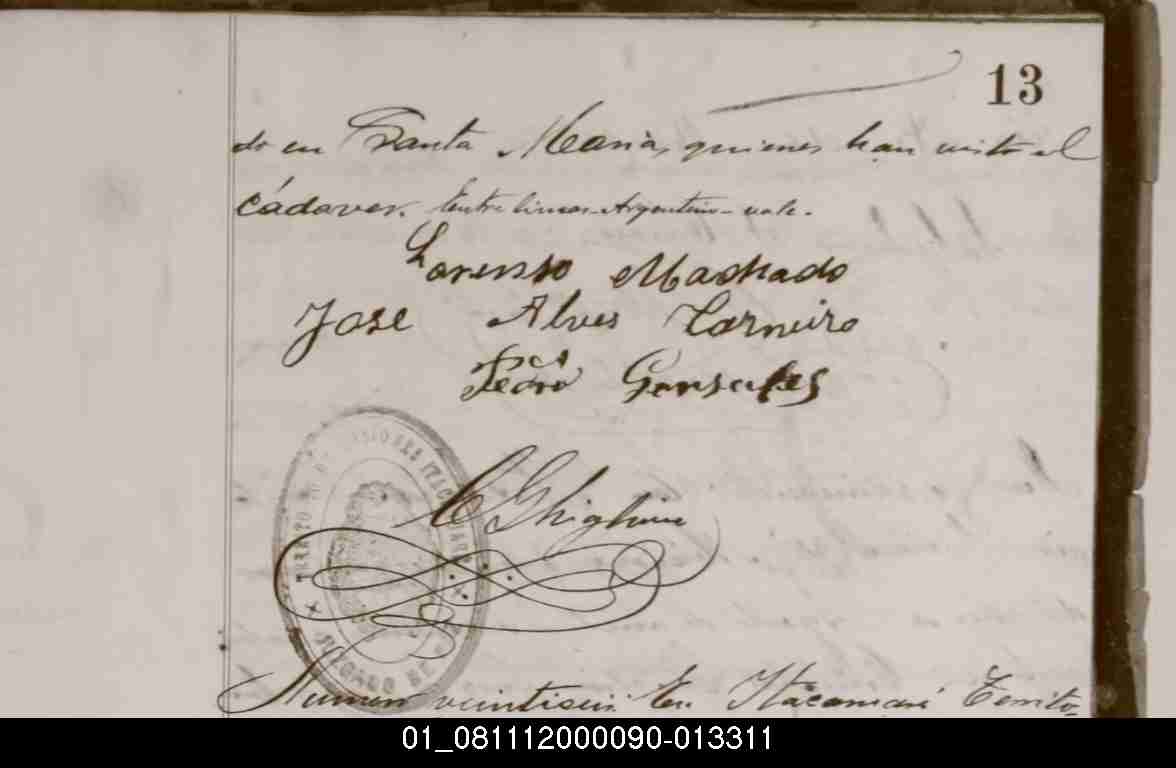 13
do en Santa Maria, quienes han visto el
cádaver. Entre lineas - Argentino - vale.
Lorenso Machado
Jose Alves Carneiro
Pedro Gonsales
C Ghiglione
JUZGADO DE
Numero veintiseis En Itacaruaré Territo-
01_081112000090-013311